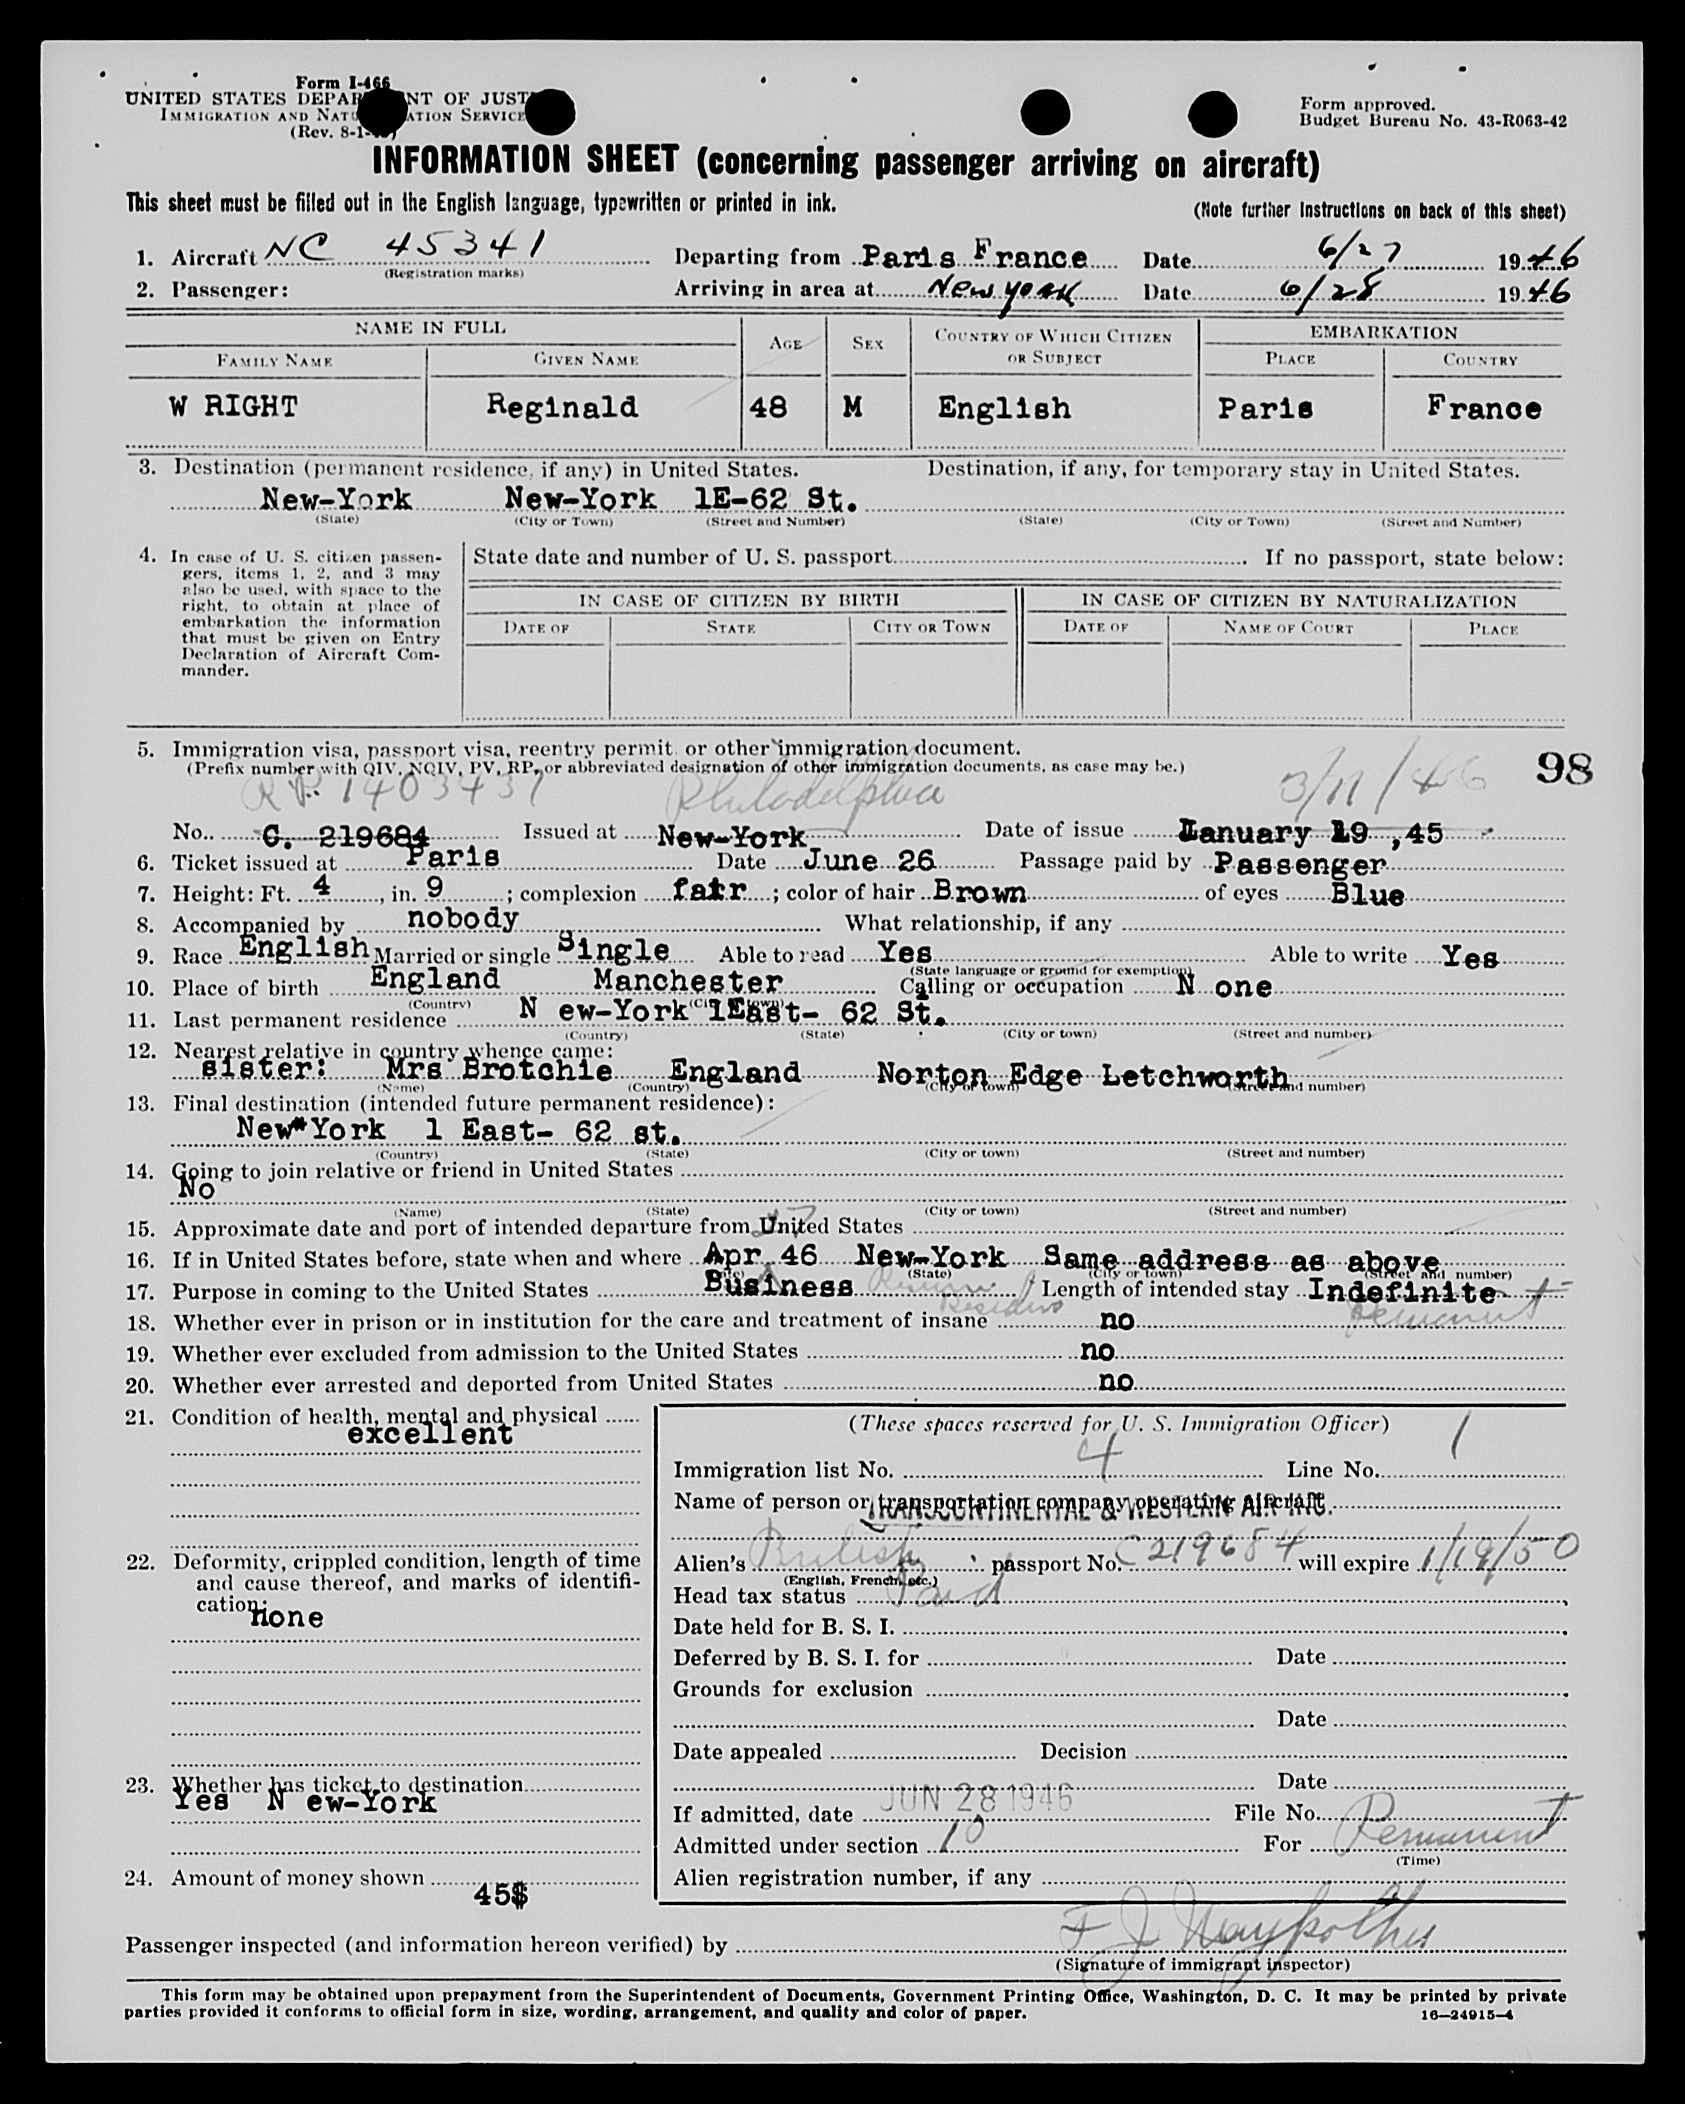 Form I-466
UNITED STATES DEPAR NT OF JUST
IMMIGRATION AND NATU ATION SERVICE
(Rev. 8-1-
Form approved.
Budget Bureau No. 43-R063-42
INFORMATION SHEET (concerning passenger arriving on aircraft)
This sheet must be filled out in the English language, typewritten or printed in ink.
(Note further instructions on back of this sheet)
1. Aircraft NC 45341 Departing from Paris France Date 6/27 1946
(Registration marks)
2. Passenger: Arriving in area at New York Date 6/28 1946
NAME IN FULL AGE SEX COUNTRY OF WHICH CITIZEN OR SUBJECT EMBARKATION
FAMILY NAME GIVEN NAME PLACE COUNTRY
W RIGHT Reginald 48 M English Paris France
3. Destination (permanent residence, if any) in United States. Destination, if any, for temporary stay in United States.
New-York New-York 1E-62 St.
(State) (City or Town) (Street and Number) (State) (City or Town) (Street and Number)
4. In case of U. S. citizen passen-
gers, items 1, 2, and 3 may
also be used, with space to the
right, to obtain at place of
embarkation the information
that must be given on Entry
Declaration of Aircraft Com-
mander.
State date and number of U. S. passport. If no passport, state below:
IN CASE OF CITIZEN BY BIRTH IN CASE OF CITIZEN BY NATURALIZATION
DATE OF STATE CITY OR TOWN DATE OF NAME OF COURT PLACE
5. Immigration visa, passport visa, reentry permit or other immigration document.
(Prefix number with QIV, NQIV, PV, RP, or abbreviated designation of other immigration documents, as case may be.)
98
RP. 1403437 Philadelphia 3/11/46
No. C. 219684 Issued at New-York Date of issue January 19 ,45
6. Ticket issued at Paris Date June 26 Passage paid by Passenger
7. Height: Ft. 4, in. 9; complexion fair; color of hair Brown of eyes Blue
8. Accompanied by nobody What relationship, if any
9. Race English Married or single Single Able to read Yes Able to write Yes
(State language or ground for exemption)
10. Place of birth England Manchester Calling or occupation N one
(Country) (City or town)
11. Last permanent residence N ew-York 1East- 62 St.
(Country) (State) (City or town) (Street and number)
12. Nearest relative in country whence came:
sister: Mrs Brotchie England Norton Edge Letchworth
(Name) (Country) (City or town) (Street and number)
13. Final destination (intended future permanent residence):
New York 1 East- 62 st.
(Country) (State) (City or town) (Street and number)
14. Going to join relative or friend in United States
No
(Name) (State) (City or town) (Street and number)
15. Approximate date and port of intended departure from United States
16. If in United States before, state when and where Apr 46 New-York Same address as above
(State) (City or town) (Street and number)
17. Purpose in coming to the United States Business Length of intended stay Indefinite
Permanent
18. Whether ever in prison or in institution for the care and treatment of insane no
19. Whether ever excluded from admission to the United States no
20. Whether ever arrested and deported from United States no
21. Condition of health, mental and physical
excellent
22. Deformity, crippled condition, length of time
and cause thereof, and marks of identifi-
cation:
none
23. Whether has ticket to destination
Yes N ew-York
24. Amount of money shown
45$
(These spaces reserved for U. S. Immigration Officer)
Immigration list No. 4 Line No. 1
Name of person or transportation company operating aircraft.
TRANSCONTINENTAL & WESTERN AIR INC.
Alien's British passport No. C219684 will expire 1/19/50
(English, French, etc.)
Head tax status Paid
Date held for B. S. I.
Deferred by B. S. I. for Date
Grounds for exclusion
Date
Date appealed Decision
Date
If admitted, date JUN 28 1946 File No.
Admitted under section 10 For Permanent
(Time)
Alien registration number, if any
Passenger inspected (and information hereon verified) by
(Signature of immigrant inspector)
This form may be obtained upon prepayment from the Superintendent of Documents, Government Printing Office, Washington, D. C. It may be printed by private
parties provided it conforms to official form in size, wording, arrangement, and quality and color of paper.
16—24915-4